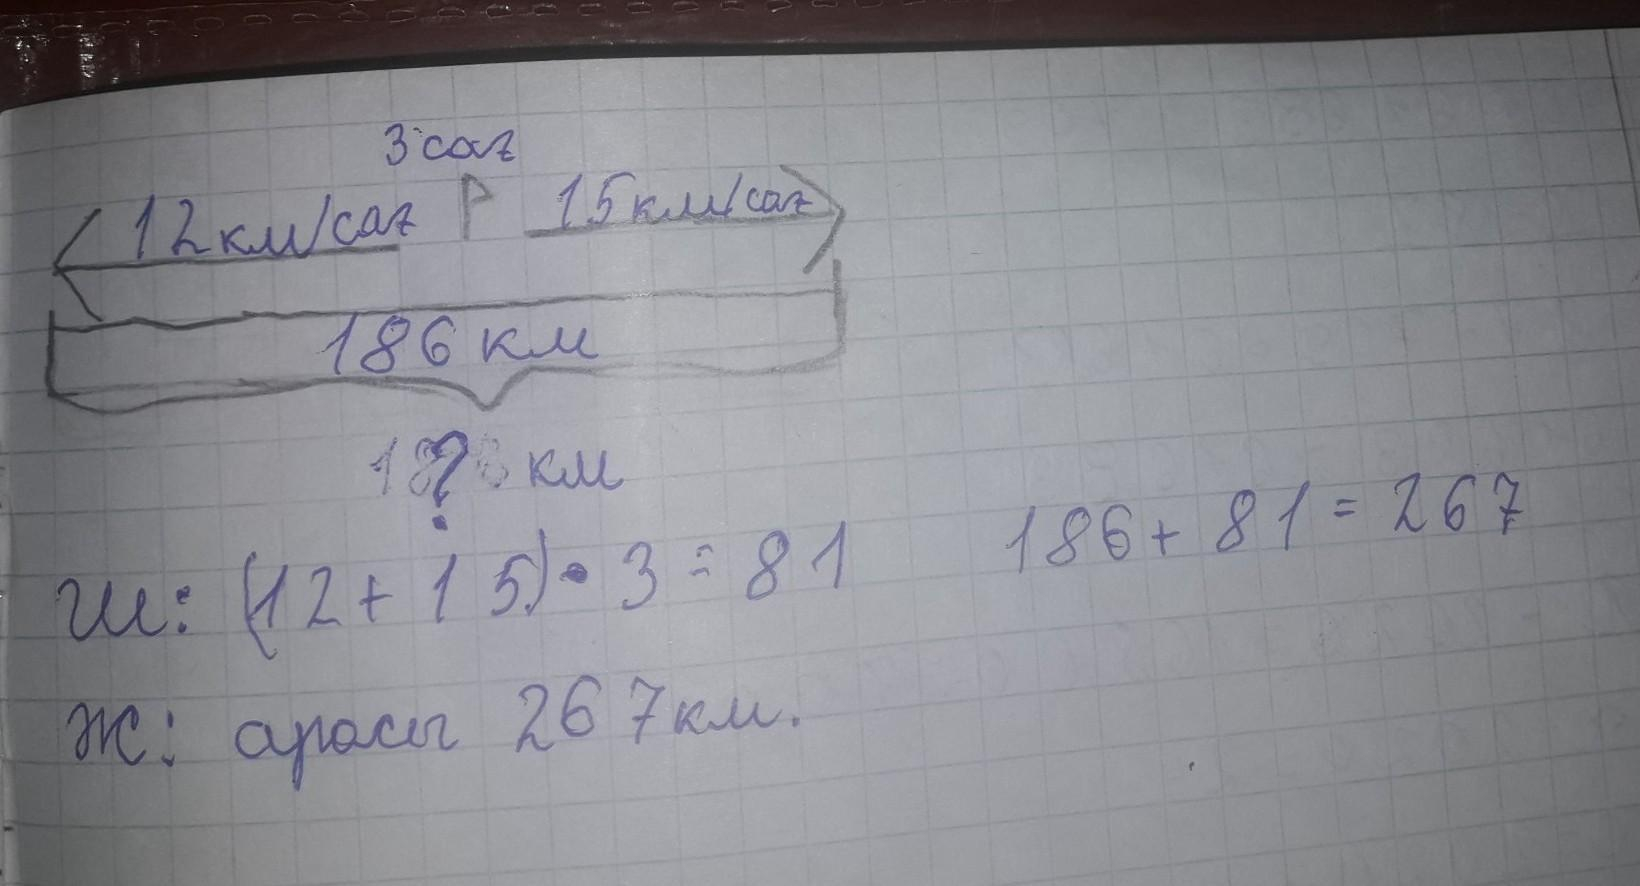 3 саг
12км/саг 15км/саг
186 км
? км
Ш: (12+15)•3=81 186+81=267
Ж: арасы 267км.